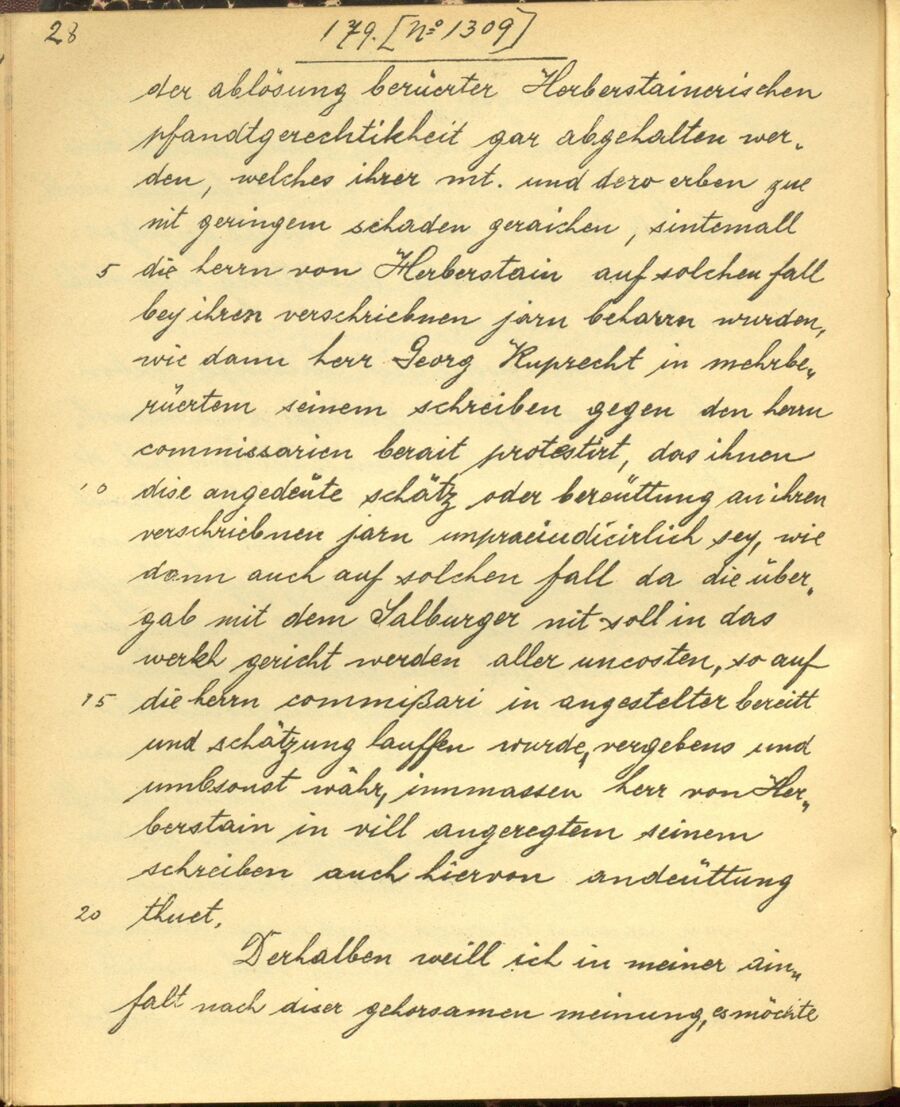 28
179. [Nº 1309]
der ablösung berüerter Herberstainerischen
pfandtgerechtikheit gar abgehalten wer„
den, welches ihrer mt. und dero erben zue
nit geringem schaden geraichen, sintemall
5 die herrn von Herberstain auf solchen fall
bey ihren verschriebnen jarn beharrn wurden,
wie dann herr Georg Ruprecht in mehrbe„
rüertem seinem schreiben gegen den herrn
commissarien berait protestirt, das ihnen
10 dise angedeüte schätz oder bereüttung an ihren
verschriebnen jarn unpraeiudicirlich sey, wie
dann auch auf solchen fall da die über„
gab mit dem Salburger nit soll in das
werkh gericht werden aller uncosten, so auf
15 die herrn commißari in angestelter bereitt
und schätzung lauffen wurde, vergebens und
umbsonst währ, innmassen herr von Her„
berstain in vill angeregtem seinem
schreiben auch hiervon andeüttung
20 thuet.
Derhalben weill ich in meiner ain„
falt nach diser gehorsamen meinung, es möchte